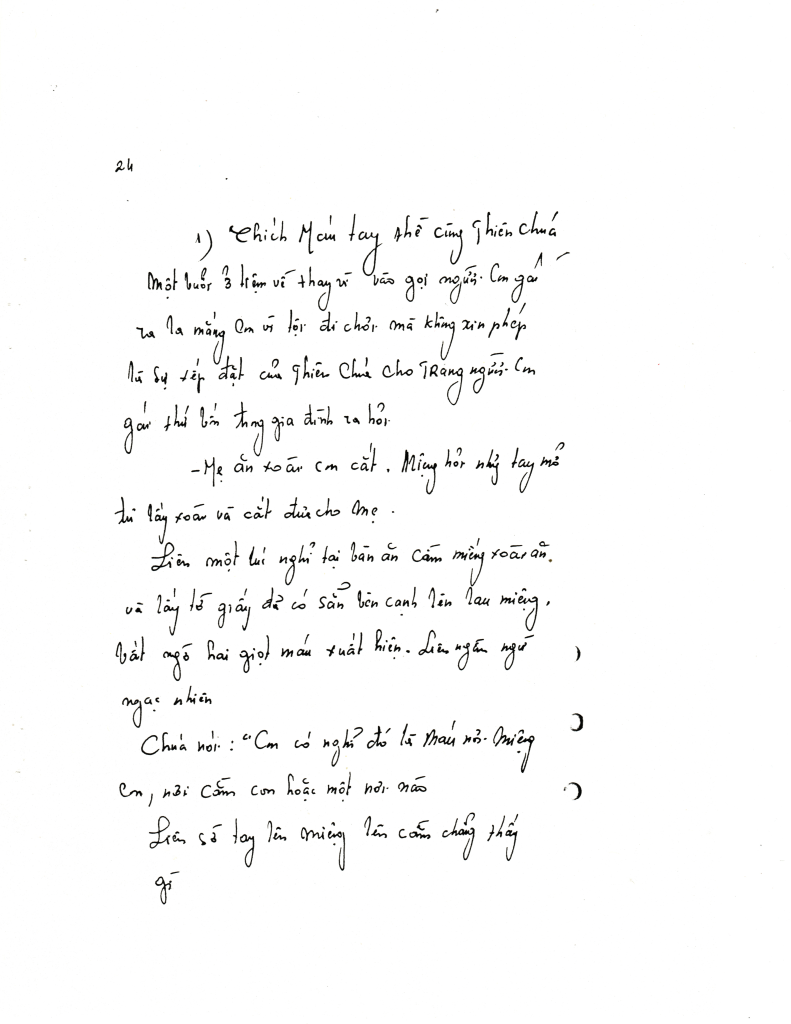 24
1) Chích Máu tay thề cùng Thiên Chúa
Một buổi ở tiệm về thay vì vào gọi người. Con gái
ra la mắng con vì tội đi chơi mà không xin phép
là sự xếp đặt của Thiên Chúa cho TRạng người. Con
gái thứ bốn trong gia đình ra hỏi
- Mẹ ăn xoài con cắt. Miệng hỏi nhỏ tay mở
tủ lấy xoài và cắt đưa cho Mẹ.
Liên một lúc nghỉ tại bàn ăn cầm miếng xoài ăn.
và lấy tờ giấy đã có sẵn bên cạnh lên lau miệng.
bất ngờ hai giọt máu xuất hiện. Liên ngẩn ngừ
ngạc nhiên
Chúa nói: "Con có nghĩ đó là Máu nơi miệng
con, nơi cằm con hoặc một nơi nào
Liên sờ tay lên miệng lên cằm chẳng thấy
gì